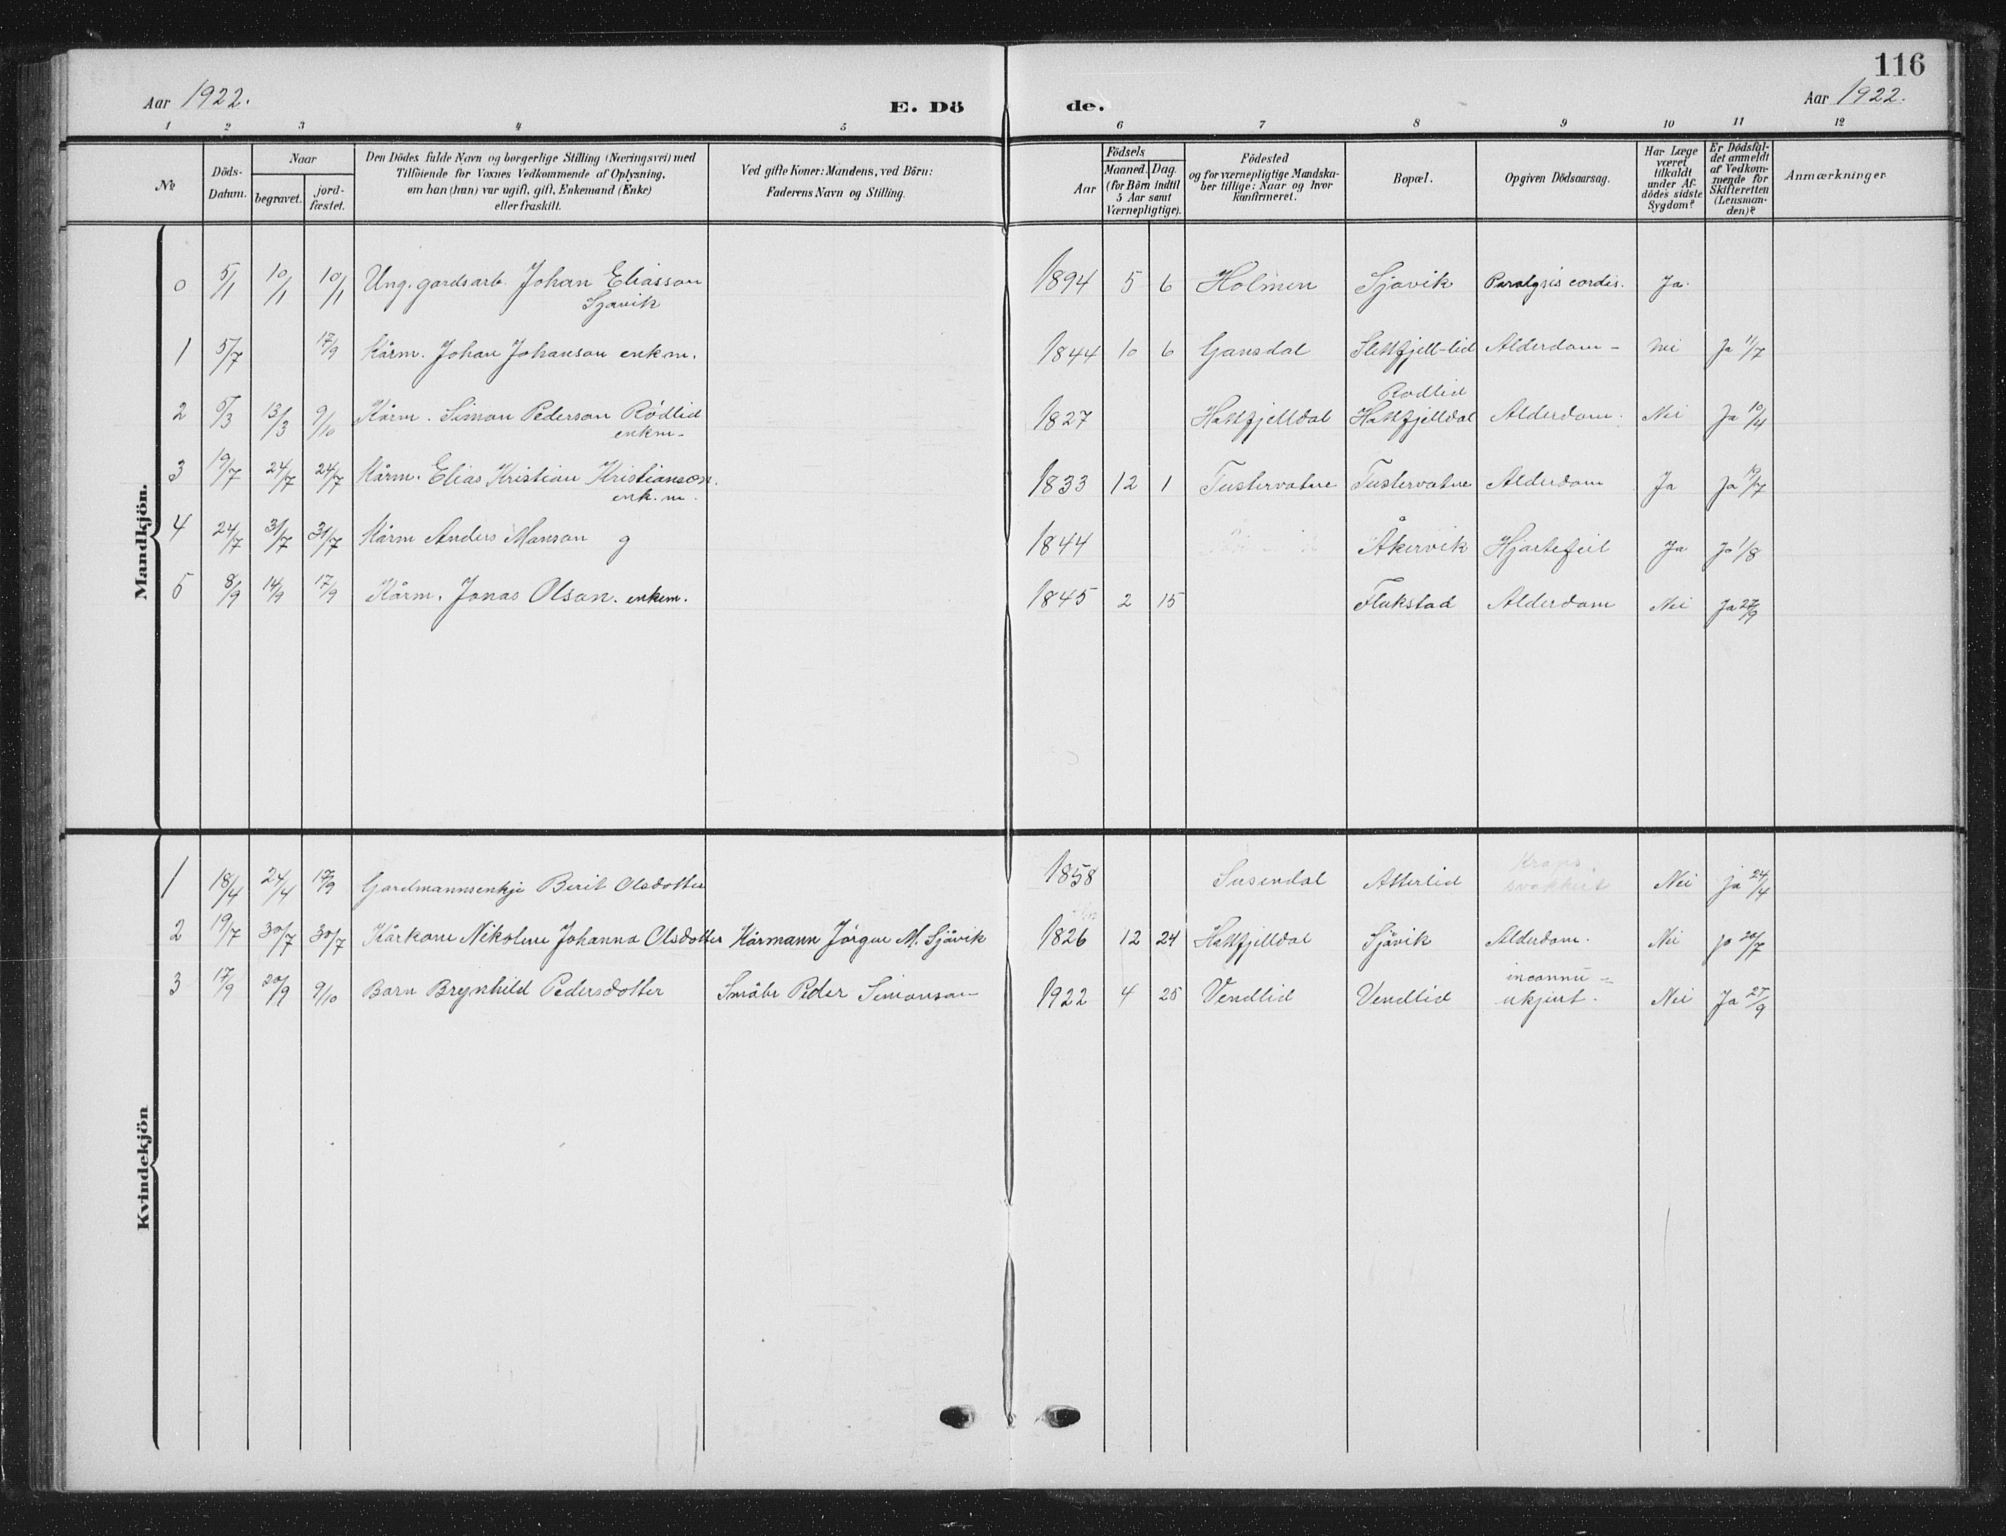 116
Aar 1922.
E. Dö de.
Aar 1922.
1 2 3 4 5 6 7 8 9 10 11 12
№
Döds-
Datum.
Naar
begravet.
jord-
fæstet.
Den Dödes fulde Navn og borgerlige Stilling (Næringsvei) med
Tilföiende for Voxnes Vedkommende af Oplysning,
om han (hun) var ugift, gift, Enkemand (Enke)
eller fraskilt.
Ved gifte Koner: Mandens, ved Börn:
Faderens Navn og Stilling.
Födsels
Aar
Maaned.
Dag.
(for Börn indtil
5 Aar samt
Værnepligtige).
Födested
og for værnepligtige Mandska-
ber tillige: Naar og hvor
konfirmeret.
Bopæl.
Opgiven Dödsaarsag.
Har Læge
været
tilkaldt
under Af-
dödes sidste
Sygdom?
Er Dödsfal-
det anmeldt
af Vedkom-
mende for
Skifteretten
(Lensman-
den)?
Anmærkninger
Mandkjön.
0 5/1 10/1 10/1 Ung. gardsarb. Johan Eliasson 1894 5 6 Holmen Sjåvik Paralysis cordis. Ja.
Sjåvik
1 5/7 17/9 Kårm. Johan Johanson enkm. 1844 10 6 Gansdal Slettfjell-lid Alderdom - Nei Ja 11/7
Rødlid
2 5/3 13/3 9/10 Kårm. Simon Pederson Rødlid 1827 Hattfjelldal Hattfjelldal Alderdom. Nei Ja 10/4
enkm.
3 19/7 24/7 24/7 Kårm. Elias Kristian Kristianson. 1833 12 1 Tustervatne Tustervatne Alderdom Ja Ja 19/7
enk.m.
4 24/7 31/7 31/7 Kårm Anders Manson g 1844 Åkervik Hjartefeil Ja Ja 1/8
5 8/9 14/9 17/9 Kårm. Jonas Olson. enkem. 1845 2 15 Flakstad Alderdom Nei Ja 27/9
Kvindekjön
1 18/4 24/4 17/9 Gardmannsenkje Berit Olsdotter 1858 Susendal Atterlid Kraps svakheit Nei ja 24/4
2 19/7 30/7 30/7 Kårkone Nikoline Johanna Olsdotter Kårmann Jørgen M. Sjåvik 1826 12 24 Hattfjelldal Sjåvik Alderdom. Nei ja 20/7
3 17/9 20/9 9/10 Barn Brynhild Pedersdotter Småbr Peder Simonson 1922 4 25 Vendlid Vendlid inconnu - ukjent. Nei Ja 27/9